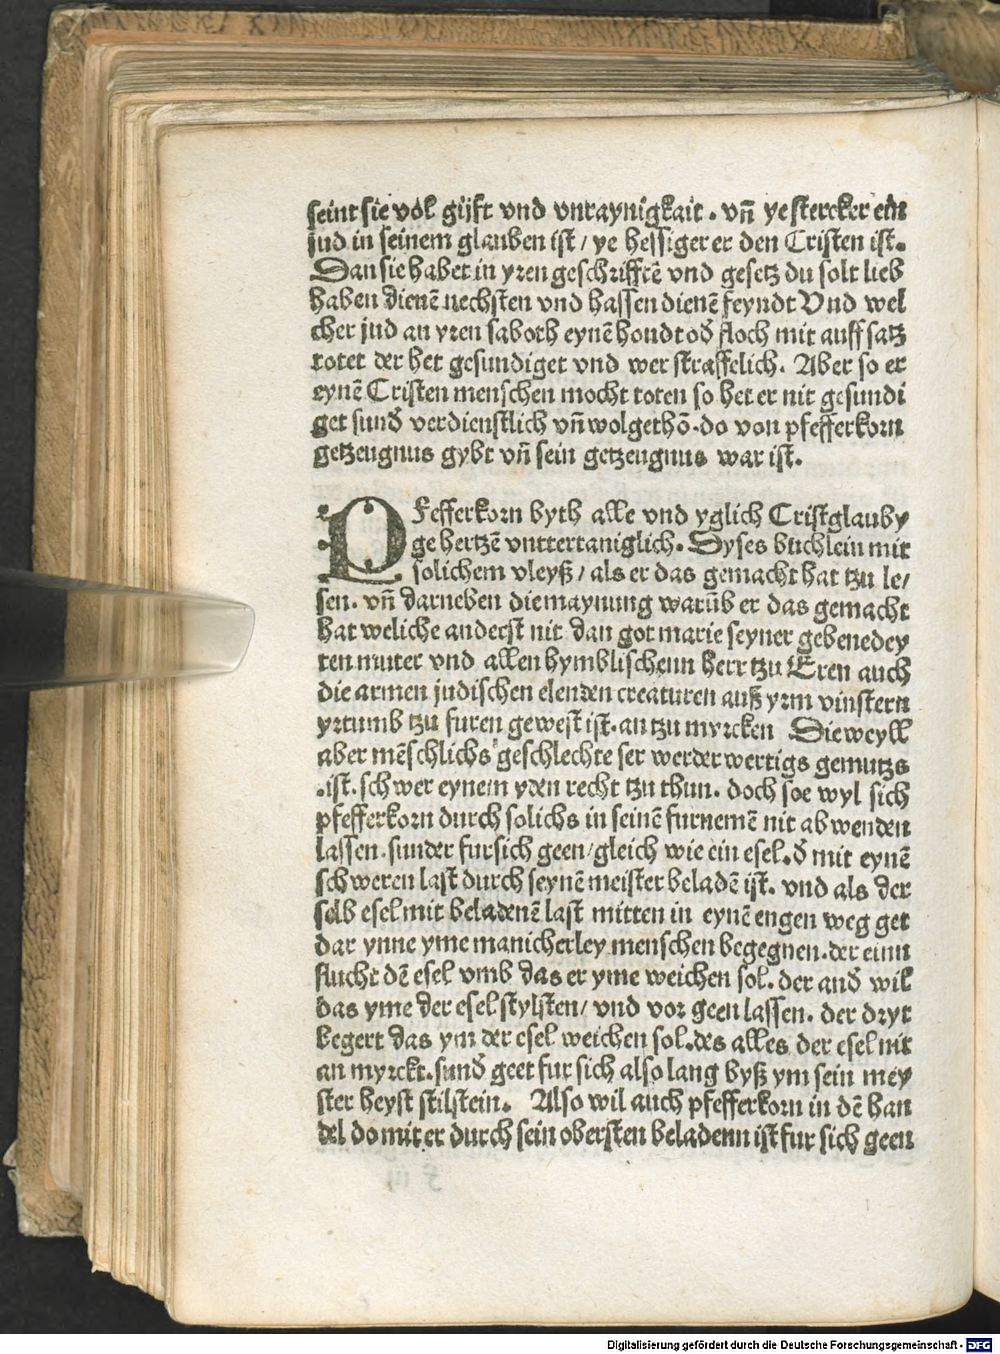 seint sie vol gijft vnd vnraynigkait. vñ ye stercker ein
jud in seinem glauben ist/ ye hessiger er den Cristen ist.
Dan sie habet in yren geschrifftē vnd gesetz du solt lieb
haben dienē nechsten vnd hassen dienē feyndt Vnd wel
cher jud an yren saboth eynē houdt od̄ floch mit auff satz
totet der het gesundiget vnd wer straffelich. Aber so er
eynē Cristen menschen mocht toten so het er nit gesundi
get sund̄ verdienstlich vñ wolgethō. do von pfefferkorn
getzeugnus gybt vñ sein getzeugnus war ist.
PFefferkorn byth alle vnd yglich Cristglauby
ge hertzē vnttertaniglich. Dyses buchlein mit
solichem vleyß/ als er das gemacht hat tzu le/
sen. vñ darneben die maynung warūb er das gemacht
hat weliche anderst nit dan got marie seyner gebenedey
ten muter vnd allen hymblischenn herr tzu Eren auch
die armen judischen elenden creaturen auß yrm vinstern
yrtumb tzu furen gewest ist. an tzu myrcken Die weyll
aber mēschlichs geschlechte ser werder wertigs gemutzs
.ist. schwer eynem yden recht tzu thun. doch soe wyl sich
pfefferkorn durch solichs in seinē furnemē nit ab wenden
lassen. sunder fur sich geen/ gleich wie ein esel. d̄ mit eynē
schweren last durch seynē meister beladē ist. vnd als der
selb esel mit beladenē last mitten in eynē engen weg get
dar ynne yme manicherley menschen begegnen. der einn
flucht dē esel vmb das er yme weichen sol. der and̄ wil
das yme der esel stylsten/ vnd vor geen lassen. der dryt
begert das ym der esel weichen sol. des alles der esel nit
an myrckt. sund̄ geet fur sich also lang byß ym sein mey
ster heyst stilstein. Also wil auch pfefferkorn in dē han
del do mit er durch sein obersten beladenn ist fur sich geen
Digitalisierung gefördert durch die Deutsche Forschungsgemeinschaft - DFG